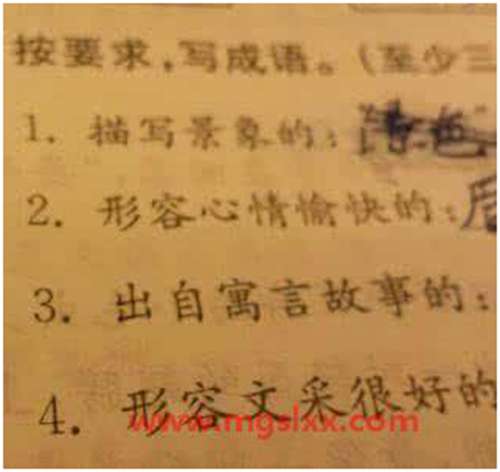 按要求,写成语。(至少三
1. 描写景象的:
2. 形容心情愉快的:
3. 出自寓言故事的:
4. 形容文采很好的
www.mgslxx.com